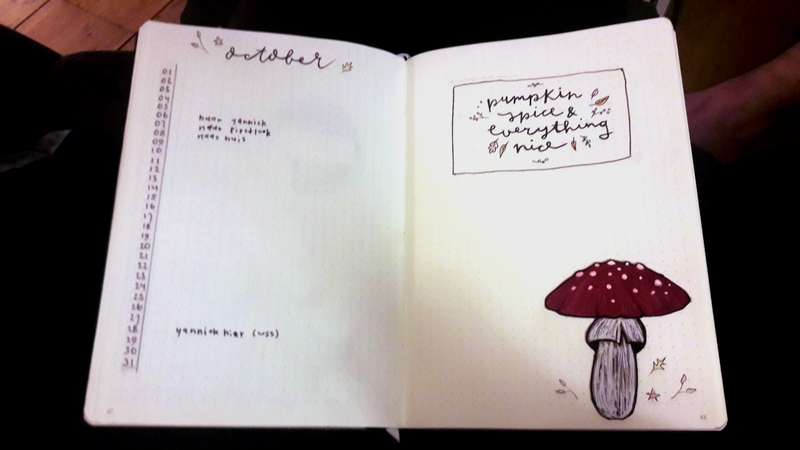 october
01
02
03
04
05
06
07
08
09
10
11
12
13
14
15
16
17
18
19
20
21
22
23
24
25
26
27
28
29
30
31
naar yannick
naar
naar huis
yannick hier (wss)
pumpkin
spice &
everything
nice